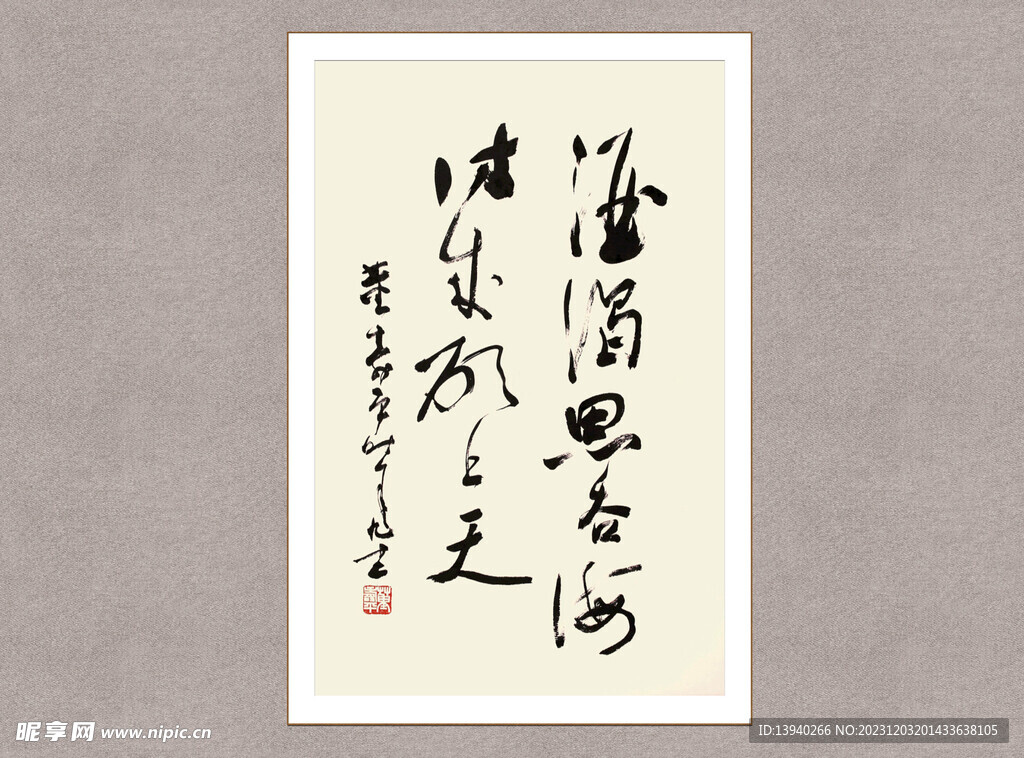 酒渴思吞海
詩狂欲上天
董壽平時年九十一
昵享网 www.nipic.cn
ID:13940266 NO:20231203201433638105